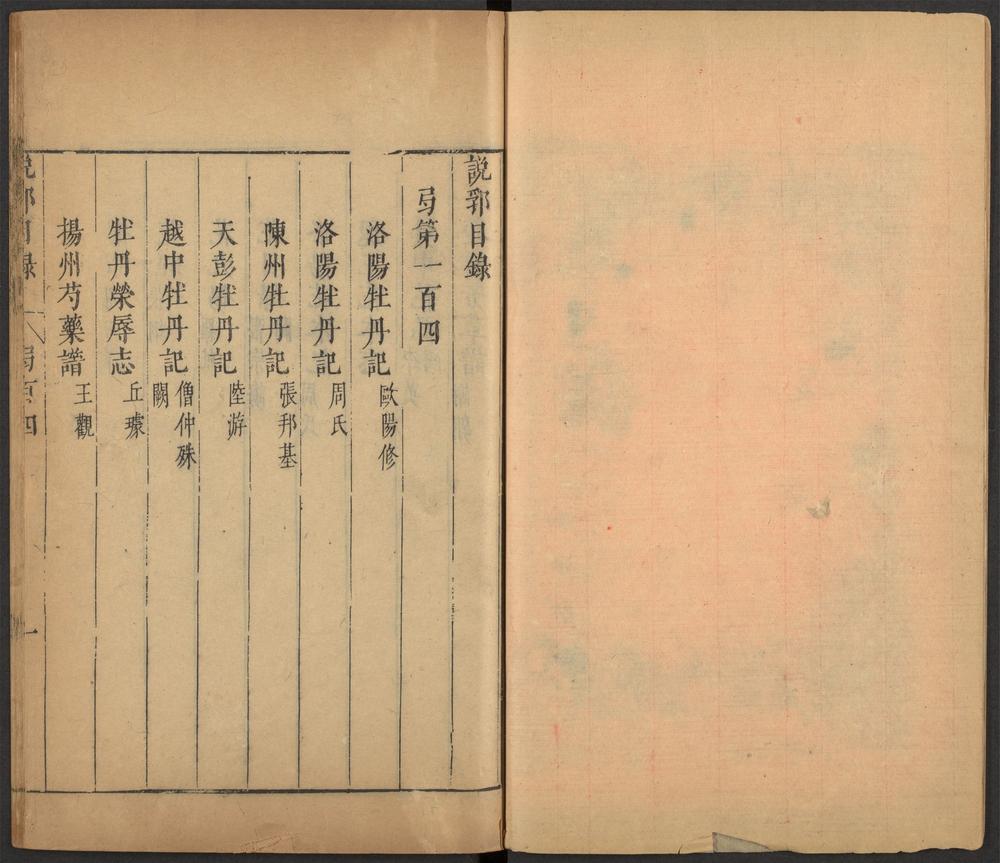 說郛目錄
弓第一百四
洛陽牡丹記 歐陽修
洛陽牡丹記 周氏
陳州牡丹記 張邦基
天彭牡丹記 陸游
越中牡丹記 僧仲殊 闕
牡丹榮辱志 丘璩
揚州芍藥譜 王觀
說郛目錄 弓百四 一